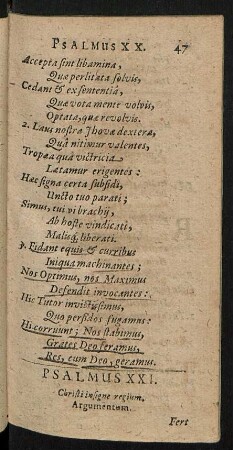 PSALMUS XX. 47
Accepta sint libamina,
Quæ perlitata solvis,
Cedant & ex sententiâ,
Quæ vota mente volvis,
Optata, quæ revolvis.
2. Laus nostra Jhovæ dexteræ,
Quâ nitimur valentes,
Tropæa quâ victricia
Lætamur erigentes:
Hæc signa certa subsidî,
Uncto tuo parati;
Simus, tui vi brachij,
Ab hoste vindicati,
Malisq́, liberati.
3. Fidant equis & curribus
Iniqua machinantes;
Nos Optimus, nos Maximus
Defendit invocantes:
Hic Tutor invictissimus,
Quo perfidos fugamus:
Hi corruunt; Nos stabimus,
Grates Deo feramus,
Res, cum Deo, geramus.
PSALMUS XXI.
Christi insigne regium.
Argumentum.
Fert